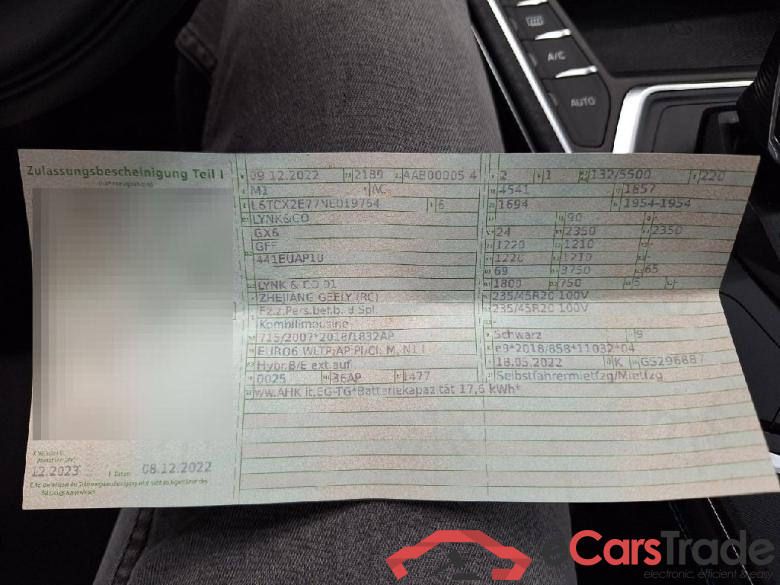 A/C
AUTO
Zulassungsbescheinigung Teil I
09.12.2022 2189 AAB00005 4 2 1 132/5500 220
M1 AC 4541 1857
L6TCX2E77NE019764 6 1694 1954-1954
LYNK&CO 90 -
GX6 24 2350 2350
GFF 1220 1210 -
441EUAP10 1220 1210 -
69 3750 65
LYNK & CO 01 1800 750 5 -
ZHEJIANG GEELY (RC) 235/45R20 100V
Fz.z.Pers.bef.b. 8 Spl. 235/45R20 100V
Kombilimousine -
715/2007*2018/1832AP Schwarz 9
EURO6 WLTP;AP;PI/CI; M, N1 I e9*2018/858*11032*04
Hybr.B/E ext.auf 18.05.2022 K G5296887
0025 36AP 1477 Selbstfahrermietfzg/Mietfzg
ww.AHK lt.EG-TG*Batteriekapazität 17,6 kWh*
12.2023 Datum 08.12.2022
eCarsTrade
electronic, efficient & easy